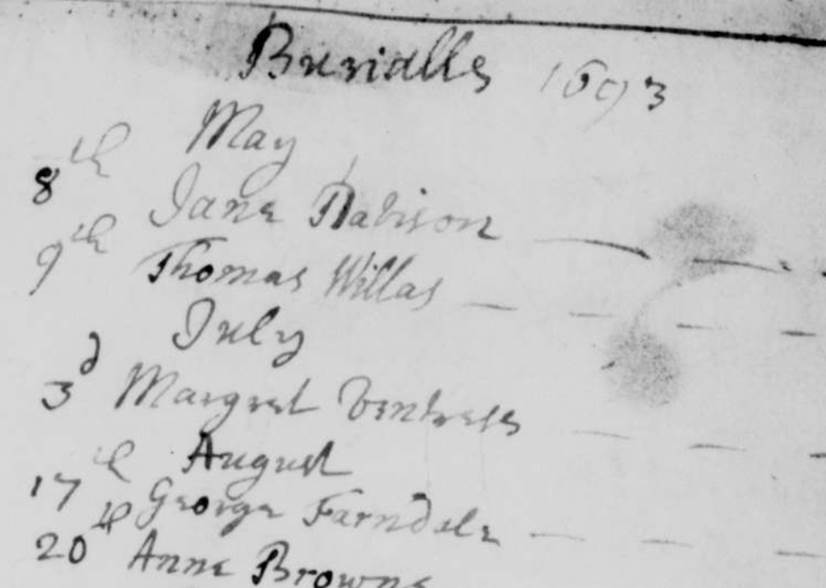 Burialls 1693
May
8th Jane Rabison
9th Thomas Willas
July
3d Margret Ventress
August
17th George Farndale
20th Anne Browne